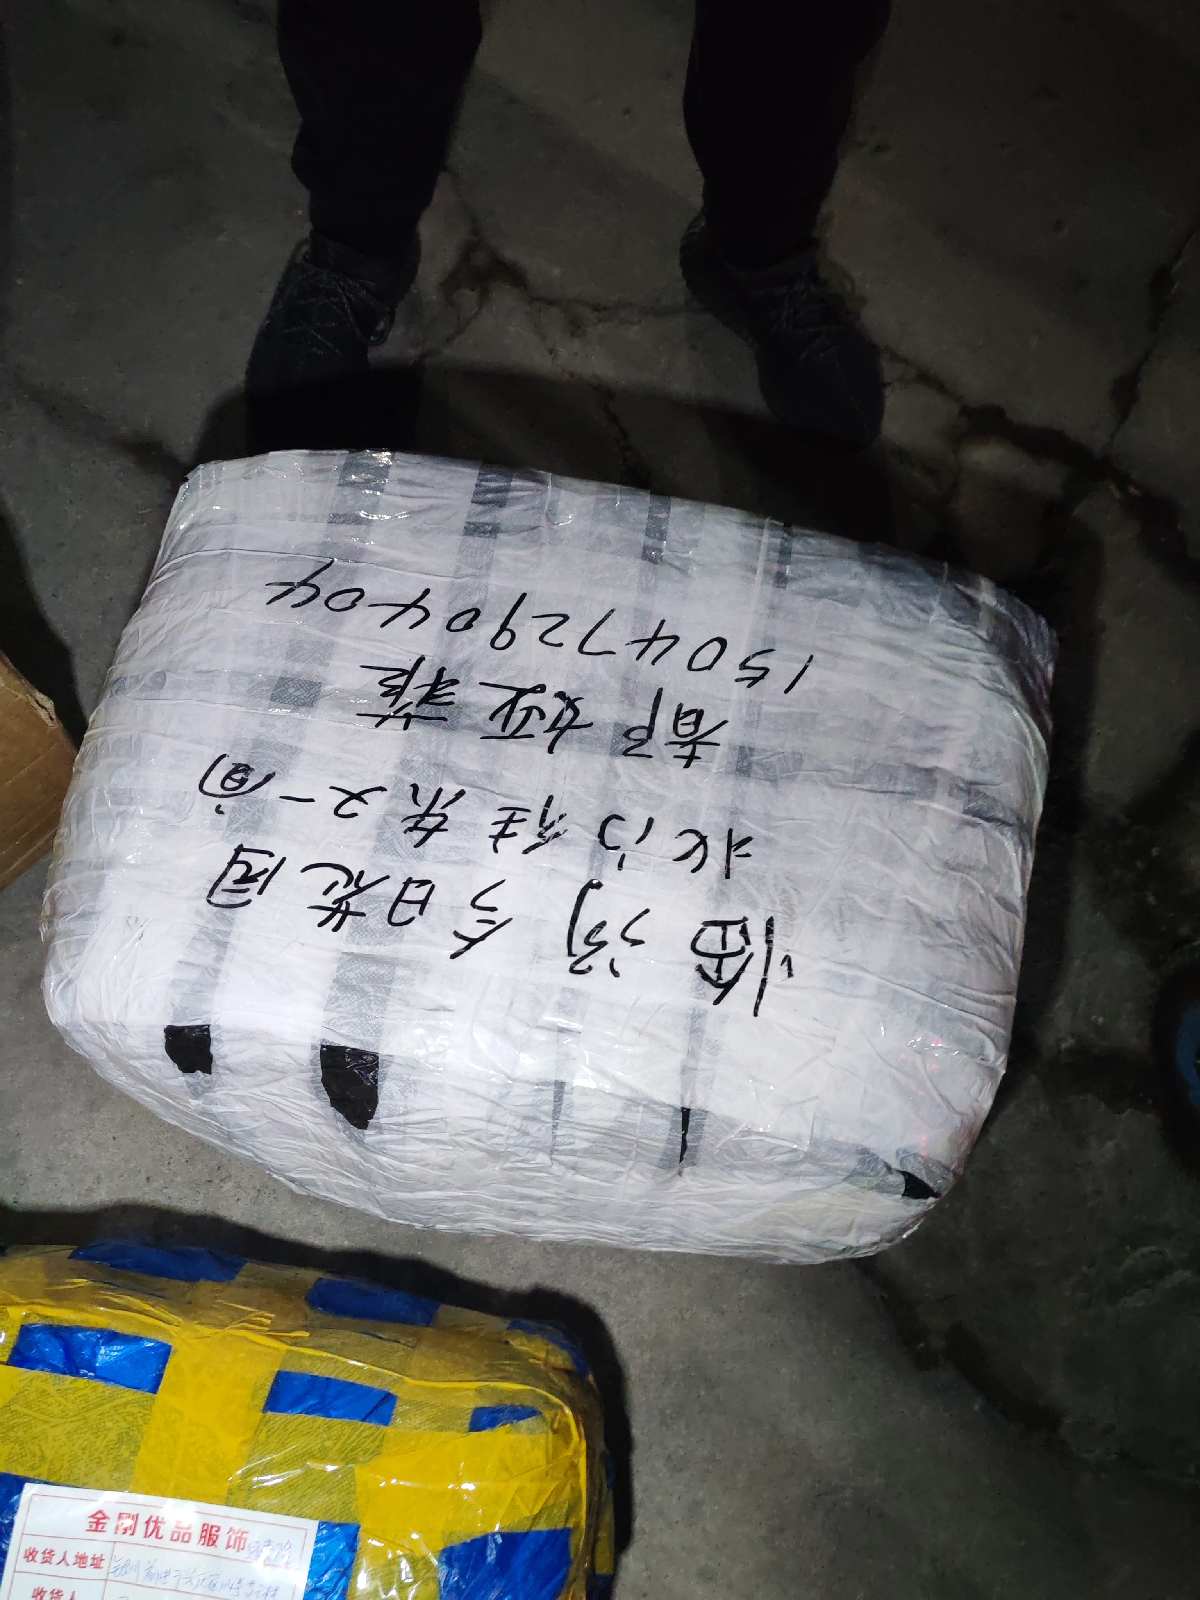 临河 今日花园
北门往东又一间
郝娅雅
15047290404
金刚优品服饰
收货人地址
收货人